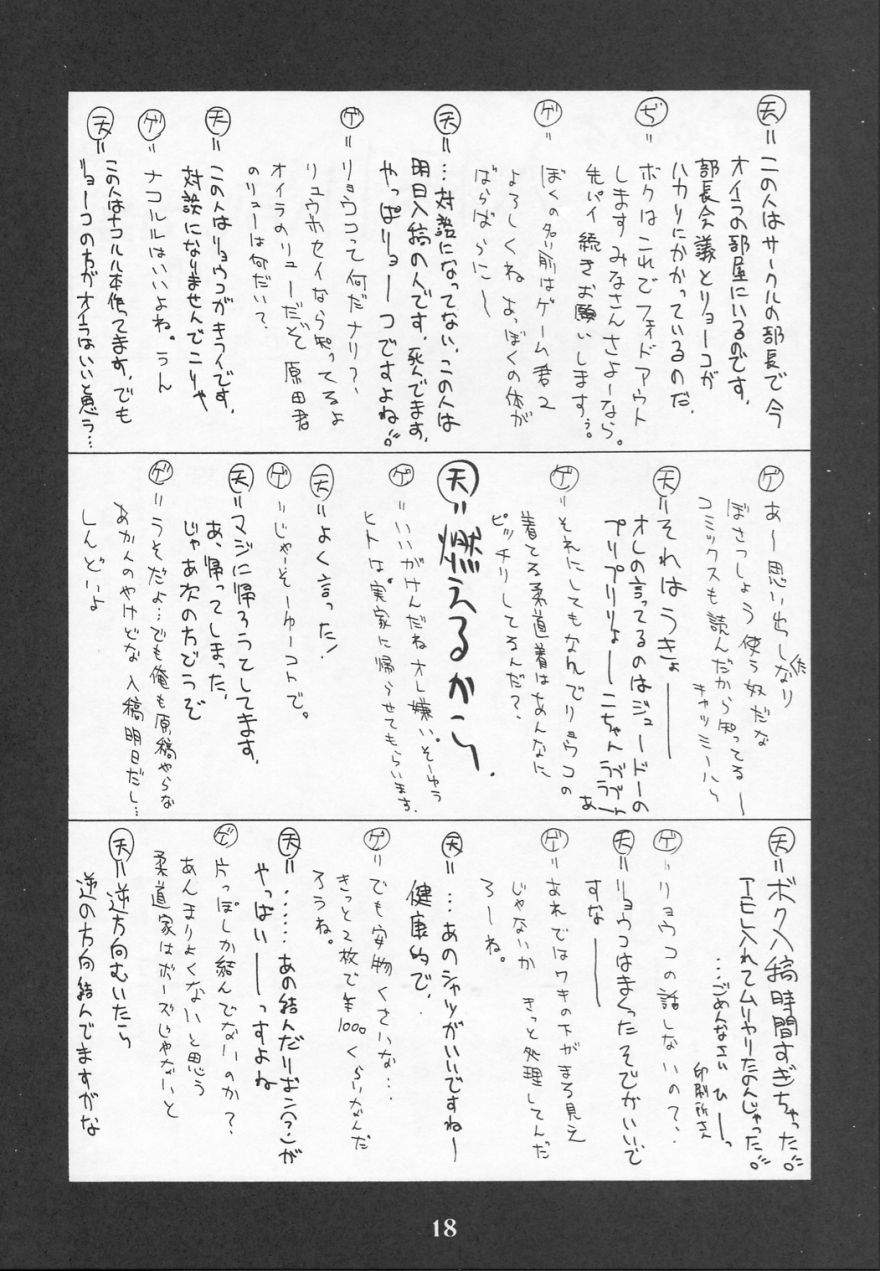 天＝この人はサークルの部長で今
オイラの部屋にいるのです。
部長会議とリョーコが
ハカリにかかっているのだ。
ぢ＝ボクはこれでフェイドアウト
しますみなさんさよーなら。
先パイ続きお願いしますぅ。
ゲ＝ぼくの名前はゲーム君2
よろしくね あっぼくの体が
ばらばらに〜
天＝…対談になってない、この人は
明日入稿の人です、死んでます。
やっぱリョーコですよね
ゲ＝リョウコって何だナリ？、
リュウホセイなら知ってるよ
オイラのリューだぞ 原田君
のリューは何だい？
天＝この人はリョウコがキライです。
対談になりませんでこりゃ
ゲ＝ナコルルはいいよね。うん
天＝この人はナコルル本作ってます。でも
リョーコの方がオイラはいいと思う…
ゲ＝あー思い出しなり
くた
ぼさつしょう 使う奴だな
コミックスも読んだから知ってる〜
キャッミーハら
天＝それはうきょ――
オレの言ってるのはジュードーの
プリプリリょーこちゃんううぅ
ゲ＝それにしてもなんでリョウコの
着てる柔道着はあんなに
ピッチリしてるんだ？、
天＝燃えるから、
ゲ＝いいがけんだねオレ嫌い。そーゆう
ヒトは。実家に帰らせてもらいます。
天＝よく言った！
ゲ＝じゃーそーゆーコトで。
天＝マジに帰ろうてしてます。
あ、帰ってしまった、
じゃあ次の方どうぞ
ゲ＝うそだよ…でも俺も原稿やらな
あかんのやけどな 入稿明日だし…
しんどいよ
天＝ボク入稿時間すぎちゃった
アモレ入れてムリヤリたのんじゃった
…ごめんなさい ひ――っ
印刷所さん
ゲ＝リョウコの話しないので、、
天＝リョウコはまくったそでがいいで
すな――
ゲ＝あれではワキの下がまる見え
じゃないか きっと処理してんだ
ろーね。
天＝…あのシャツがいいですね〜
健康的で、
ゲ＝でも安物くさいな…
きっと2枚で¥1000くらいなんだ
ろうね。
天＝……あの結んだリボン(？)が
やっぱい――っすよね
ゲ＝片っぽしか結んでないのか？、
あんまりよくないと思う
柔道家はボーズじゃないと
天＝逆方向むいたら
逆の方向結んでますがな
18